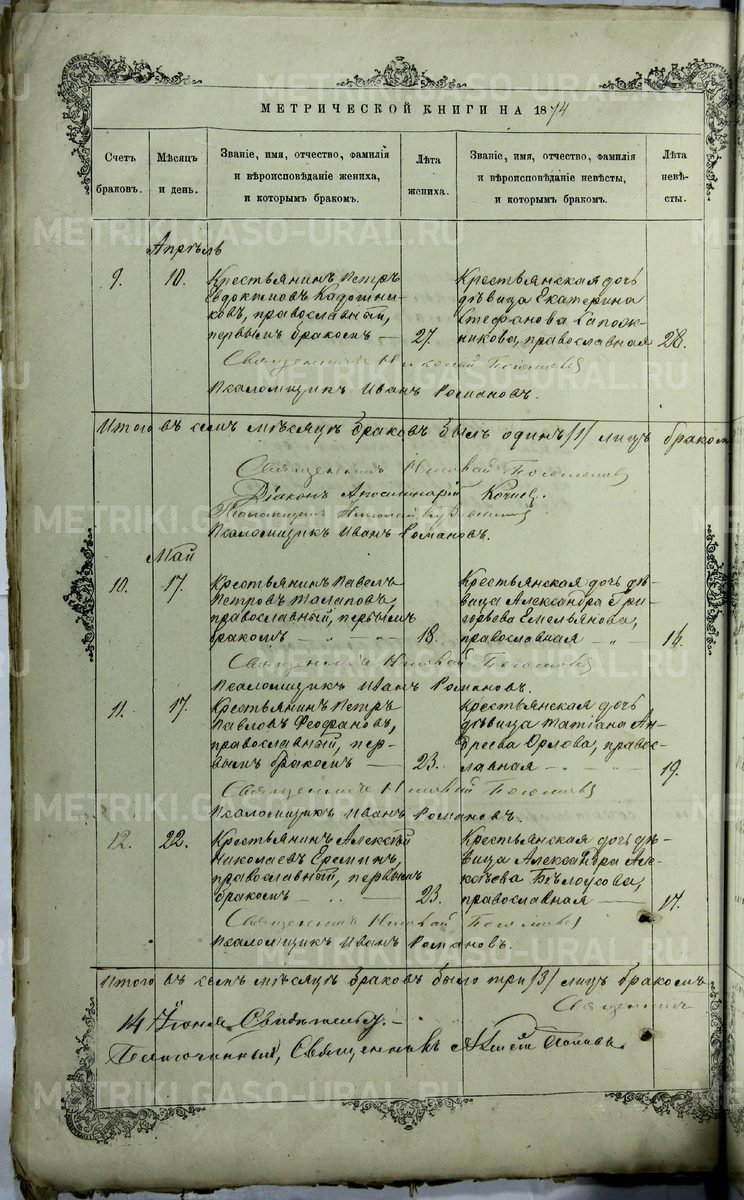 МЕТРИЧЕСКОЙ КНИГИ НА 1874
Счетъ браковъ.
Мѣсяцъ и день.
Званіе, имя, отчество, фамилія и вѣроисповѣданіе жениха, и которымъ бракомъ.
Лѣта жениха.
Званіе, имя, отчество, фамилія и вѣроисповѣданіе невѣсты, и которымъ бракомъ.
Лѣта невѣсты.
Апрѣль
9. 10. Крестьянинъ Петръ
Евдокимовъ Кадошни-
ковъ, православный,
первымъ бракомъ — 27.
Крестьянская дочь
дѣвица Екатерина
Стефанова Сапож-
никова, православная 28.
Священникъ Николай
Псаломщикъ Иванъ Романовъ.
Итого въ семъ мѣсяцѣ браковъ былъ одинъ /1/ лицъ бракомъ
Священникъ Николай
Діаконъ Аполлинарій
Псаломщикъ Николай
Псаломщикъ Иванъ Романовъ.
Май
10. 17. Крестьянинъ Павелъ
Петровъ Талаповъ,
православный, первымъ
бракомъ — 18.
Крестьянская дочь дѣ-
вица Александра Гри-
горьева Емельянова,
православная 16.
Священникъ Николай
Псаломщикъ Иванъ Романовъ.
11. 17. Крестьянинъ Петръ
Павловъ Феофановъ,
православный, пер-
вымъ бракомъ — 23.
Крестьянская дочь
дѣвица Татіана Ан-
дреева Орлова, правос-
лавная — 19.
Священникъ Николай
Псаломщикъ Иванъ Романовъ.
12. 22. Крестьянинъ Алексѣй
Николаевъ Ереминъ,
православный, первымъ
бракомъ — 23.
Крестьянская дочь дѣ-
вица Александра Але-
ксѣева Бѣлоусова,
православная — 17.
Священникъ Николай
Псаломщикъ Иванъ Романовъ.
Итого въ семъ мѣсяцѣ браковъ было три /3/ лицъ бракомъ
Священникъ
14 Іюня
Благочинный, Священникъ Поповъ
METRIKI.GASO-URAL.RU